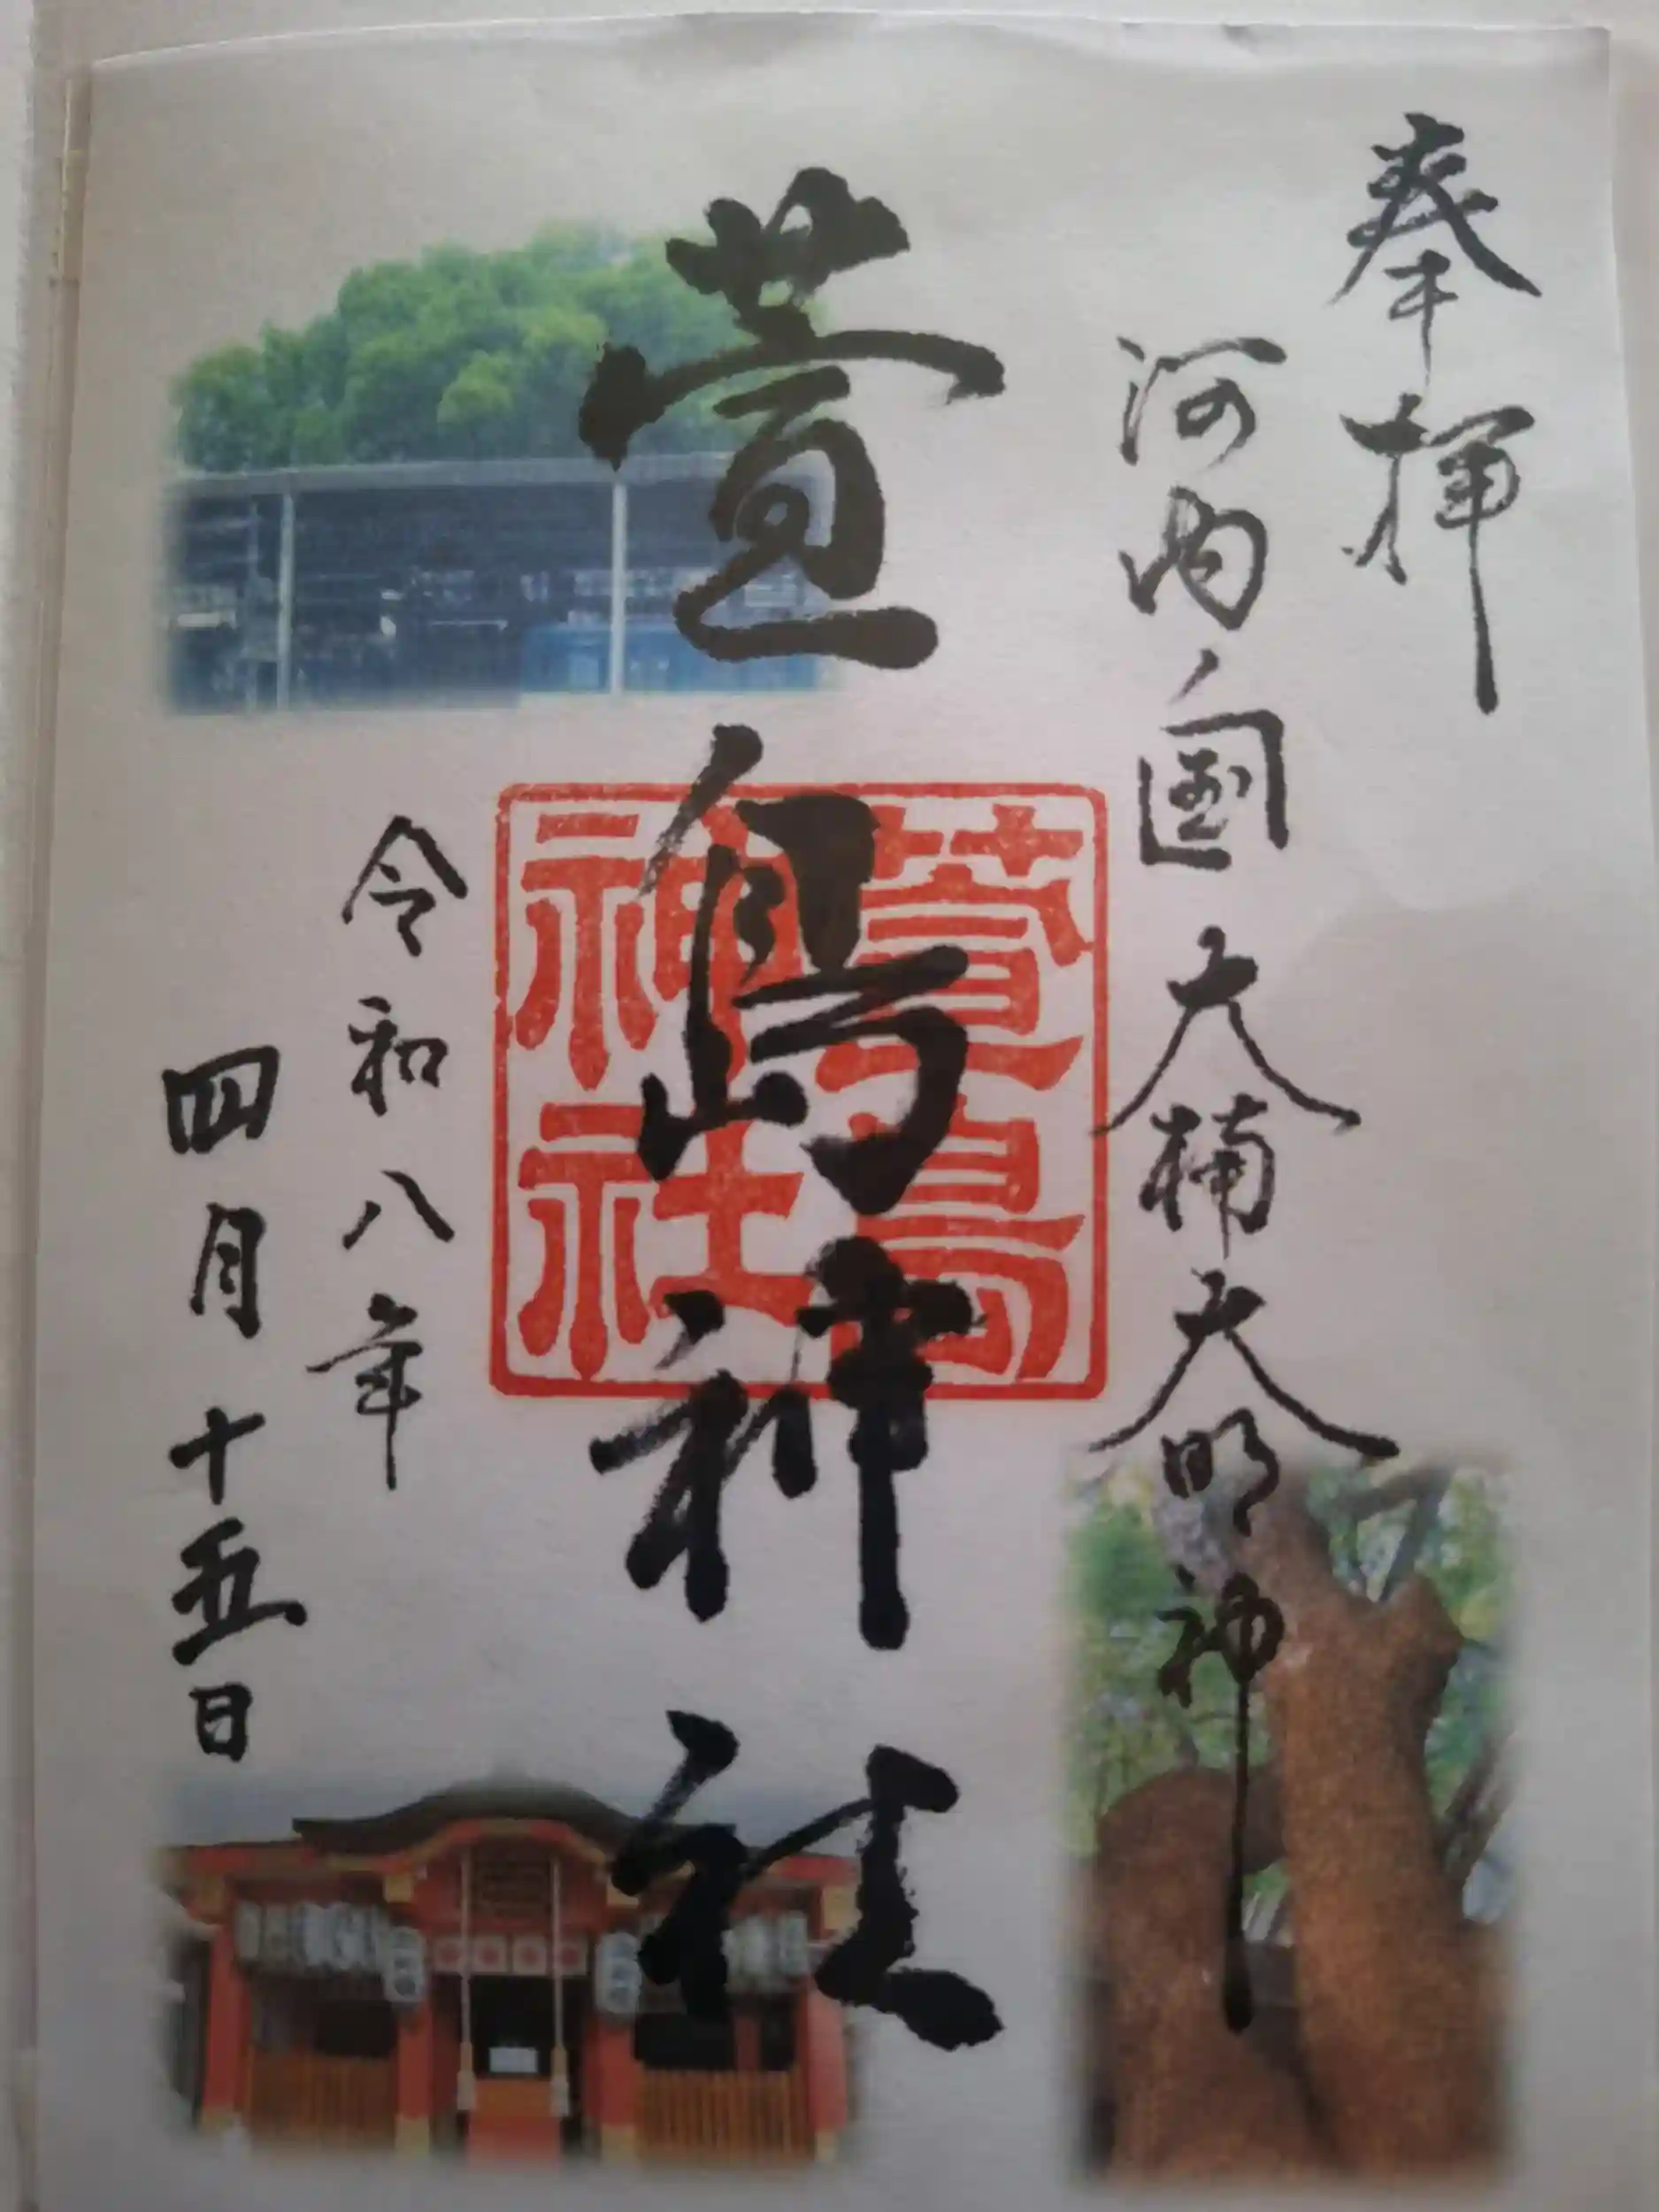 奉拝
河内ノ國 大楠大明神
萱島神社
萱島
神社
令和八年
四月十五日